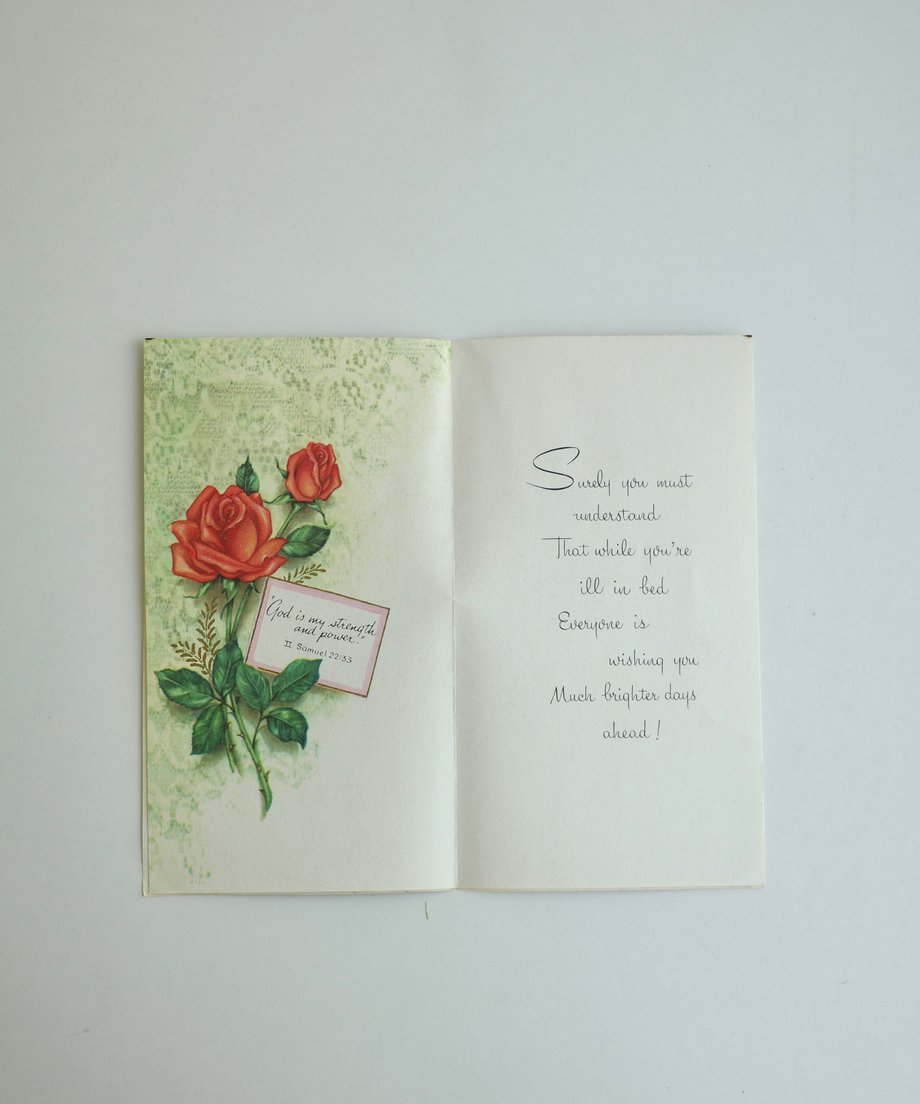 "God is my strength
and power."
II Samuel 22:33
Surely you must
understand
That while you're
ill in bed
Everyone is
wishing you
Much brighter days
ahead!